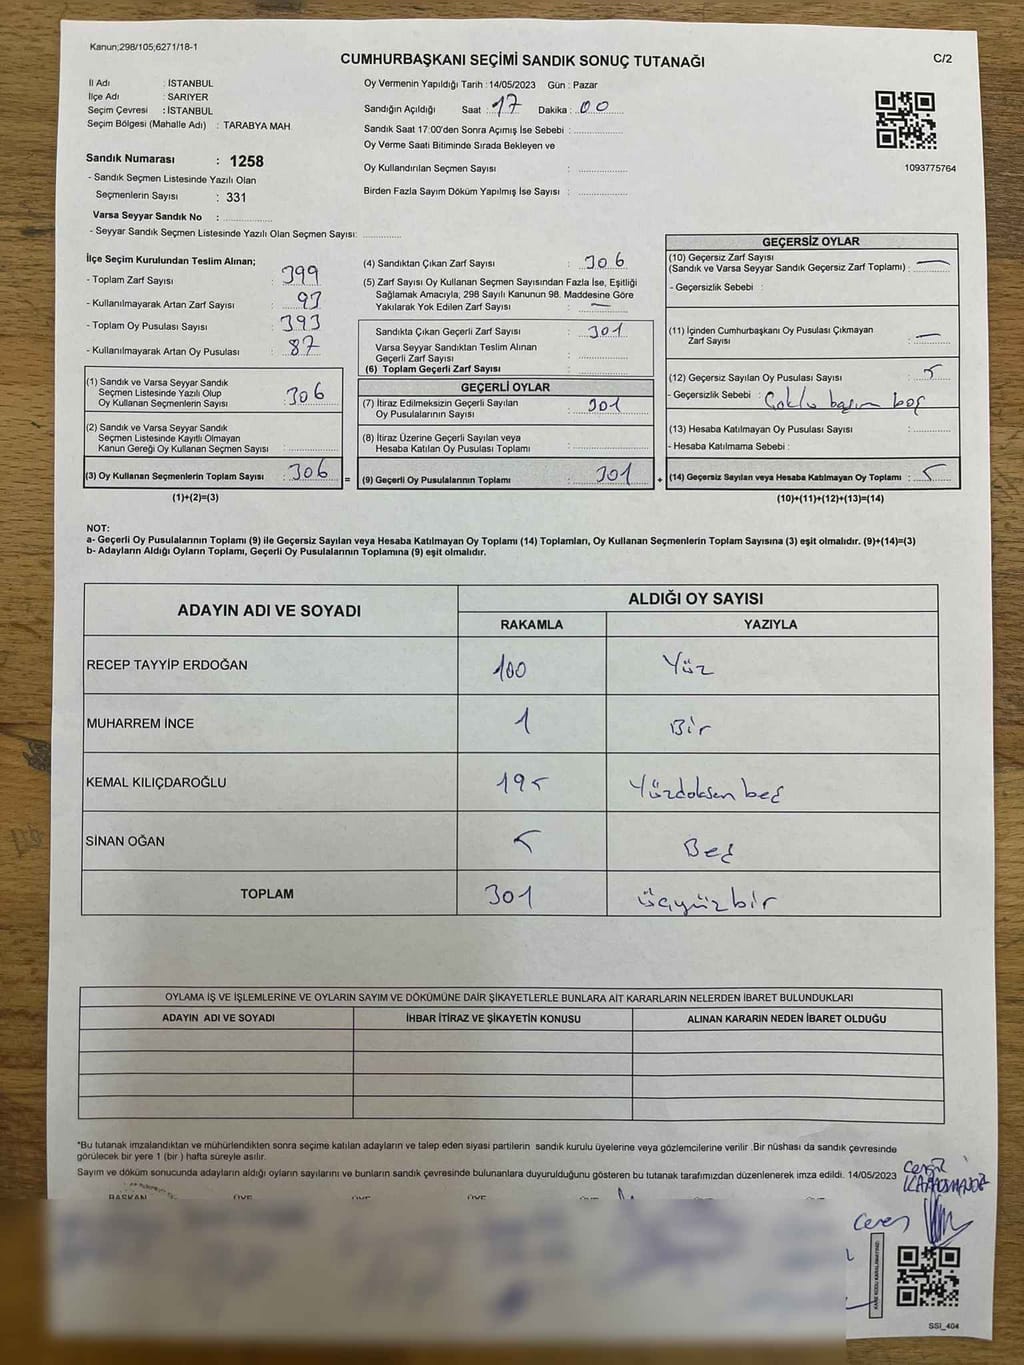 Kanun;298/105;6271/18-1
CUMHURBAŞKANI SEÇİMİ SANDIK SONUÇ TUTANAĞI
C/2
İl Adı : İSTANBUL
İlçe Adı : SARIYER
Seçim Çevresi : İSTANBUL
Seçim Bölgesi (Mahalle Adı) : TARABYA MAH.
Oy Vermenin Yapıldığı Tarih : 14/05/2023 Gün : Pazar
Sandığın Açıldığı Saat : 17 Dakika : 00
Sandık Saat 17:00'den Sonra Açımış İse Sebebi :
Oy Verme Saati Bitiminde Sırada Bekleyen ve
Oy Kullandırılan Seçmen Sayısı :
Birden Fazla Sayım Döküm Yapılmış İse Sayısı :
1093775764
Sandık Numarası : 1258
- Sandık Seçmen Listesinde Yazılı Olan
Seçmenlerin Sayısı : 331
Varsa Seyyar Sandık No :
- Seyyar Sandık Seçmen Listesinde Yazılı Olan Seçmen Sayısı:
İlçe Seçim Kurulundan Teslim Alınan;
- Toplam Zarf Sayısı : 399
- Kullanılmayarak Artan Zarf Sayısı : 93
- Toplam Oy Pusulası Sayısı : 393
- Kullanılmayarak Artan Oy Pusulası : 87
(1) Sandık ve Varsa Seyyar Sandık
Seçmen Listesinde Yazılı Olup
Oy Kullanan Seçmenlerin Sayısı : 306
(2) Sandık ve Varsa Seyyar Sandık
Seçmen Listesinde Kayıtlı Olmayan
Kanun Gereği Oy Kullanan Seçmen Sayısı :
(3) Oy Kullanan Seçmenlerin Toplam Sayısı : 306
(1)+(2)=(3)
(4) Sandıktan Çıkan Zarf Sayısı : 306
(5) Zarf Sayısı Oy Kullanan Seçmen Sayısından Fazla İse, Eşitliği
Sağlamak Amacıyla, 298 Sayılı Kanunun 98. Maddesine Göre
Yakılarak Yok Edilen Zarf Sayısı : —
Sandıkta Çıkan Geçerli Zarf Sayısı : 301
Varsa Seyyar Sandıktan Teslim Alınan
Geçerli Zarf Sayısı :
(6) Toplam Geçerli Zarf Sayısı :
GEÇERLİ OYLAR
(7) İtiraz Edilmeksizin Geçerli Sayılan
Oy Pusulalarının Sayısı : 301
(8) İtiraz Üzerine Geçerli Sayılan veya
Hesaba Katılan Oy Pusulası Toplamı :
= (9) Geçerli Oy Pusulalarının Toplamı : 301
GEÇERSİZ OYLAR
(10) Geçersiz Zarf Sayısı
(Sandık ve Varsa Seyyar Sandık Geçersiz Zarf Toplamı) : —
- Geçersizlik Sebebi :
(11) İçinden Cumhurbaşkanı Oy Pusulası Çıkmayan
Zarf Sayısı : —
(12) Geçersiz Sayılan Oy Pusulası Sayısı : 5
- Geçersizlik Sebebi : Çoklu basım boş
(13) Hesaba Katılmayan Oy Pusulası Sayısı :
- Hesaba Katılmama Sebebi :
+ (14) Geçersiz Sayılan veya Hesaba Katılmayan Oy Toplamı : 5
(10)+(11)+(12)+(13)=(14)
NOT:
a- Geçerli Oy Pusulalarının Toplamı (9) ile Geçersiz Sayılan veya Hesaba Katılmayan Oy Toplamı (14) Toplamları, Oy Kullanan Seçmenlerin Toplam Sayısına (3) eşit olmalıdır. (9)+(14)=(3)
b- Adayların Aldığı Oyların Toplamı, Geçerli Oy Pusulalarının Toplamına (9) eşit olmalıdır.
ADAYIN ADI VE SOYADI
ALDIĞI OY SAYISI
RAKAMLA YAZIYLA
RECEP TAYYİP ERDOĞAN 100 Yüz
MUHARREM İNCE 1 Bir
KEMAL KILIÇDAROĞLU 195 Yüzdoksan beş
SİNAN OĞAN 5 Beş
TOPLAM 301 üçyüzbir
OYLAMA İŞ VE İŞLEMLERİNE VE OYLARIN SAYIM VE DÖKÜMÜNE DAİR ŞİKAYETLERLE BUNLARA AİT KARARLARIN NELERDEN İBARET BULUNDUKLARI
ADAYIN ADI VE SOYADI İHBAR İTİRAZ VE ŞİKAYETİN KONUSU ALINAN KARARIN NEDEN İBARET OLDUĞU
*Bu tutanak imzalandıktan ve mühürlendikten sonra seçime katılan adayların ve talep eden siyasi partilerin sandık kurulu üyelerine veya gözlemcilerine verilir .Bir nüshası da sandık çevresinde
görülecek bir yere 1 (bir ) hafta süreyle asılır.
Sayım ve döküm sonucunda adayların aldığı oyların sayılarını ve bunların sandık çevresinde bulunanlara duyurulduğunu gösteren bu tutanak tarafımızdan düzenlenerek imza edildi. 14/05/2023
BAŞKAN ÜYE ÜYE ÜYE ÜYE
Ceren
KARE KODU KARALAMAYINIZ!
SSİ_404